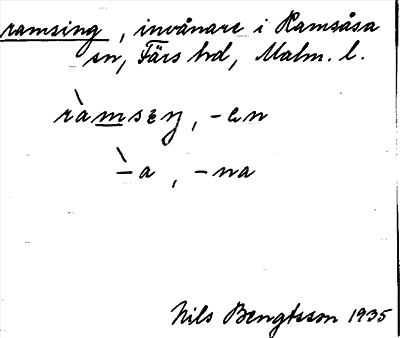 ramsing, invånare i Ramsåsa
sn, Färs hd, Malm. l.
ràmsɛŋ, -en
-̀a, -na
Nils Bengtsson 1935